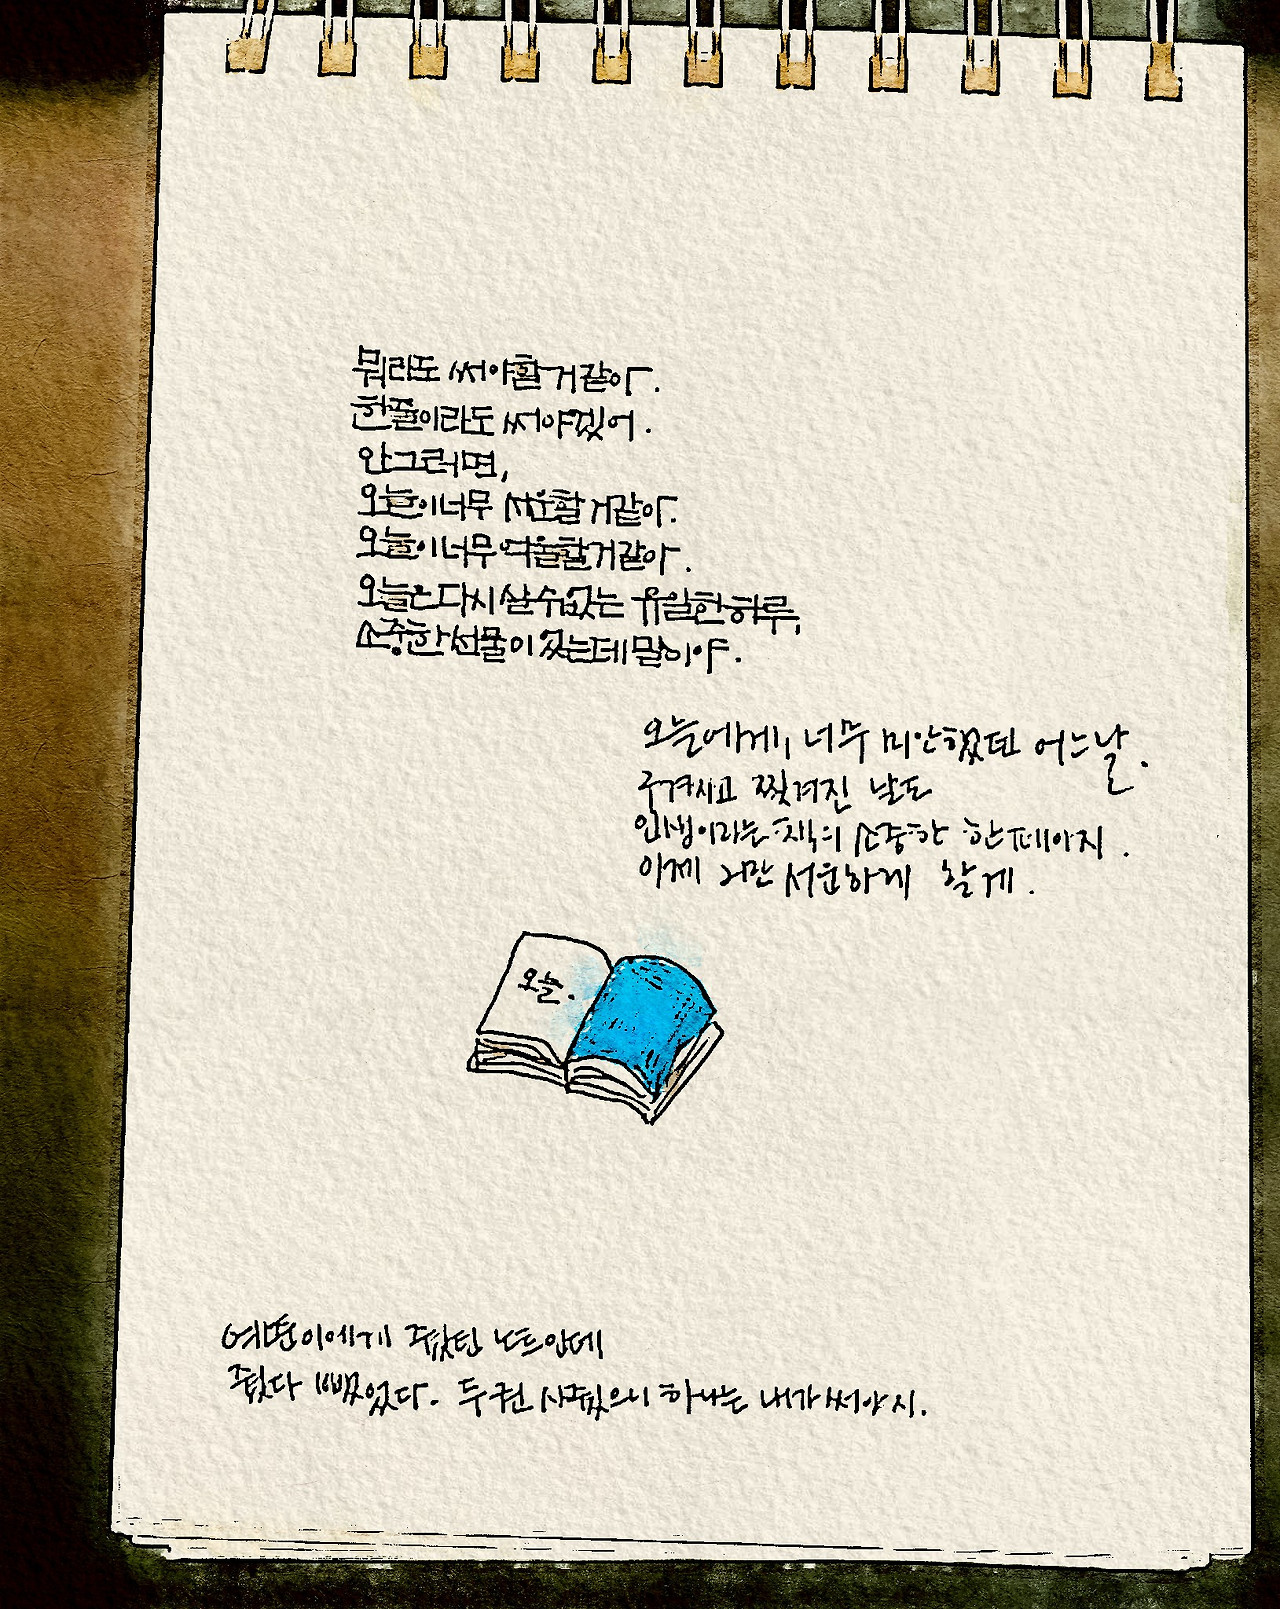 뭐라도 써야할거같아.
한줄이라도 써야겠어.
안그러면,
오늘이너무 서운할거같아.
오늘이너무억울할거같아.
오늘은다시살수없는 유일한하루,
소중한선물이었는데말이야.
오늘에게, 너무 미안했던 어느날.
구겨지고 찢겨진 날도
인생이라는 책의 소중한 한페이지.
이제 그만 서운하게 할게.
오늘.
줬던 노트인데
줬다 뺐었다. 두권 사줬으니 하나는 내가써야지.